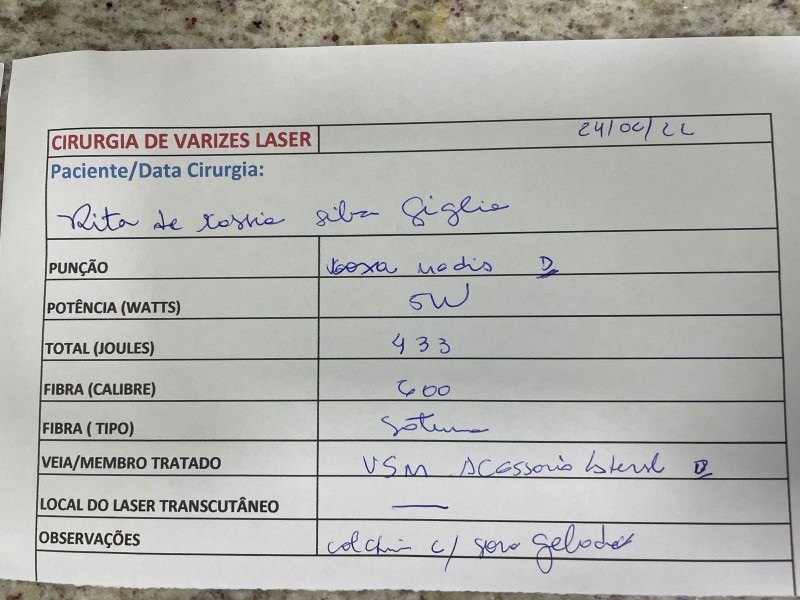 CIRURGIA DE VARIZES LASER 24/06/22
Paciente/Data Cirurgia:
Rita de Cassia Silva Giglio
PUNÇÃO coxa D
POTÊNCIA (WATTS) 5W
TOTAL (JOULES) 433
FIBRA (CALIBRE) 600
FIBRA ( TIPO)
VEIA/MEMBRO TRATADO VSM Acessoria lateral D
LOCAL DO LASER TRANSCUTÂNEO —
OBSERVAÇÕES c/ soro gelado